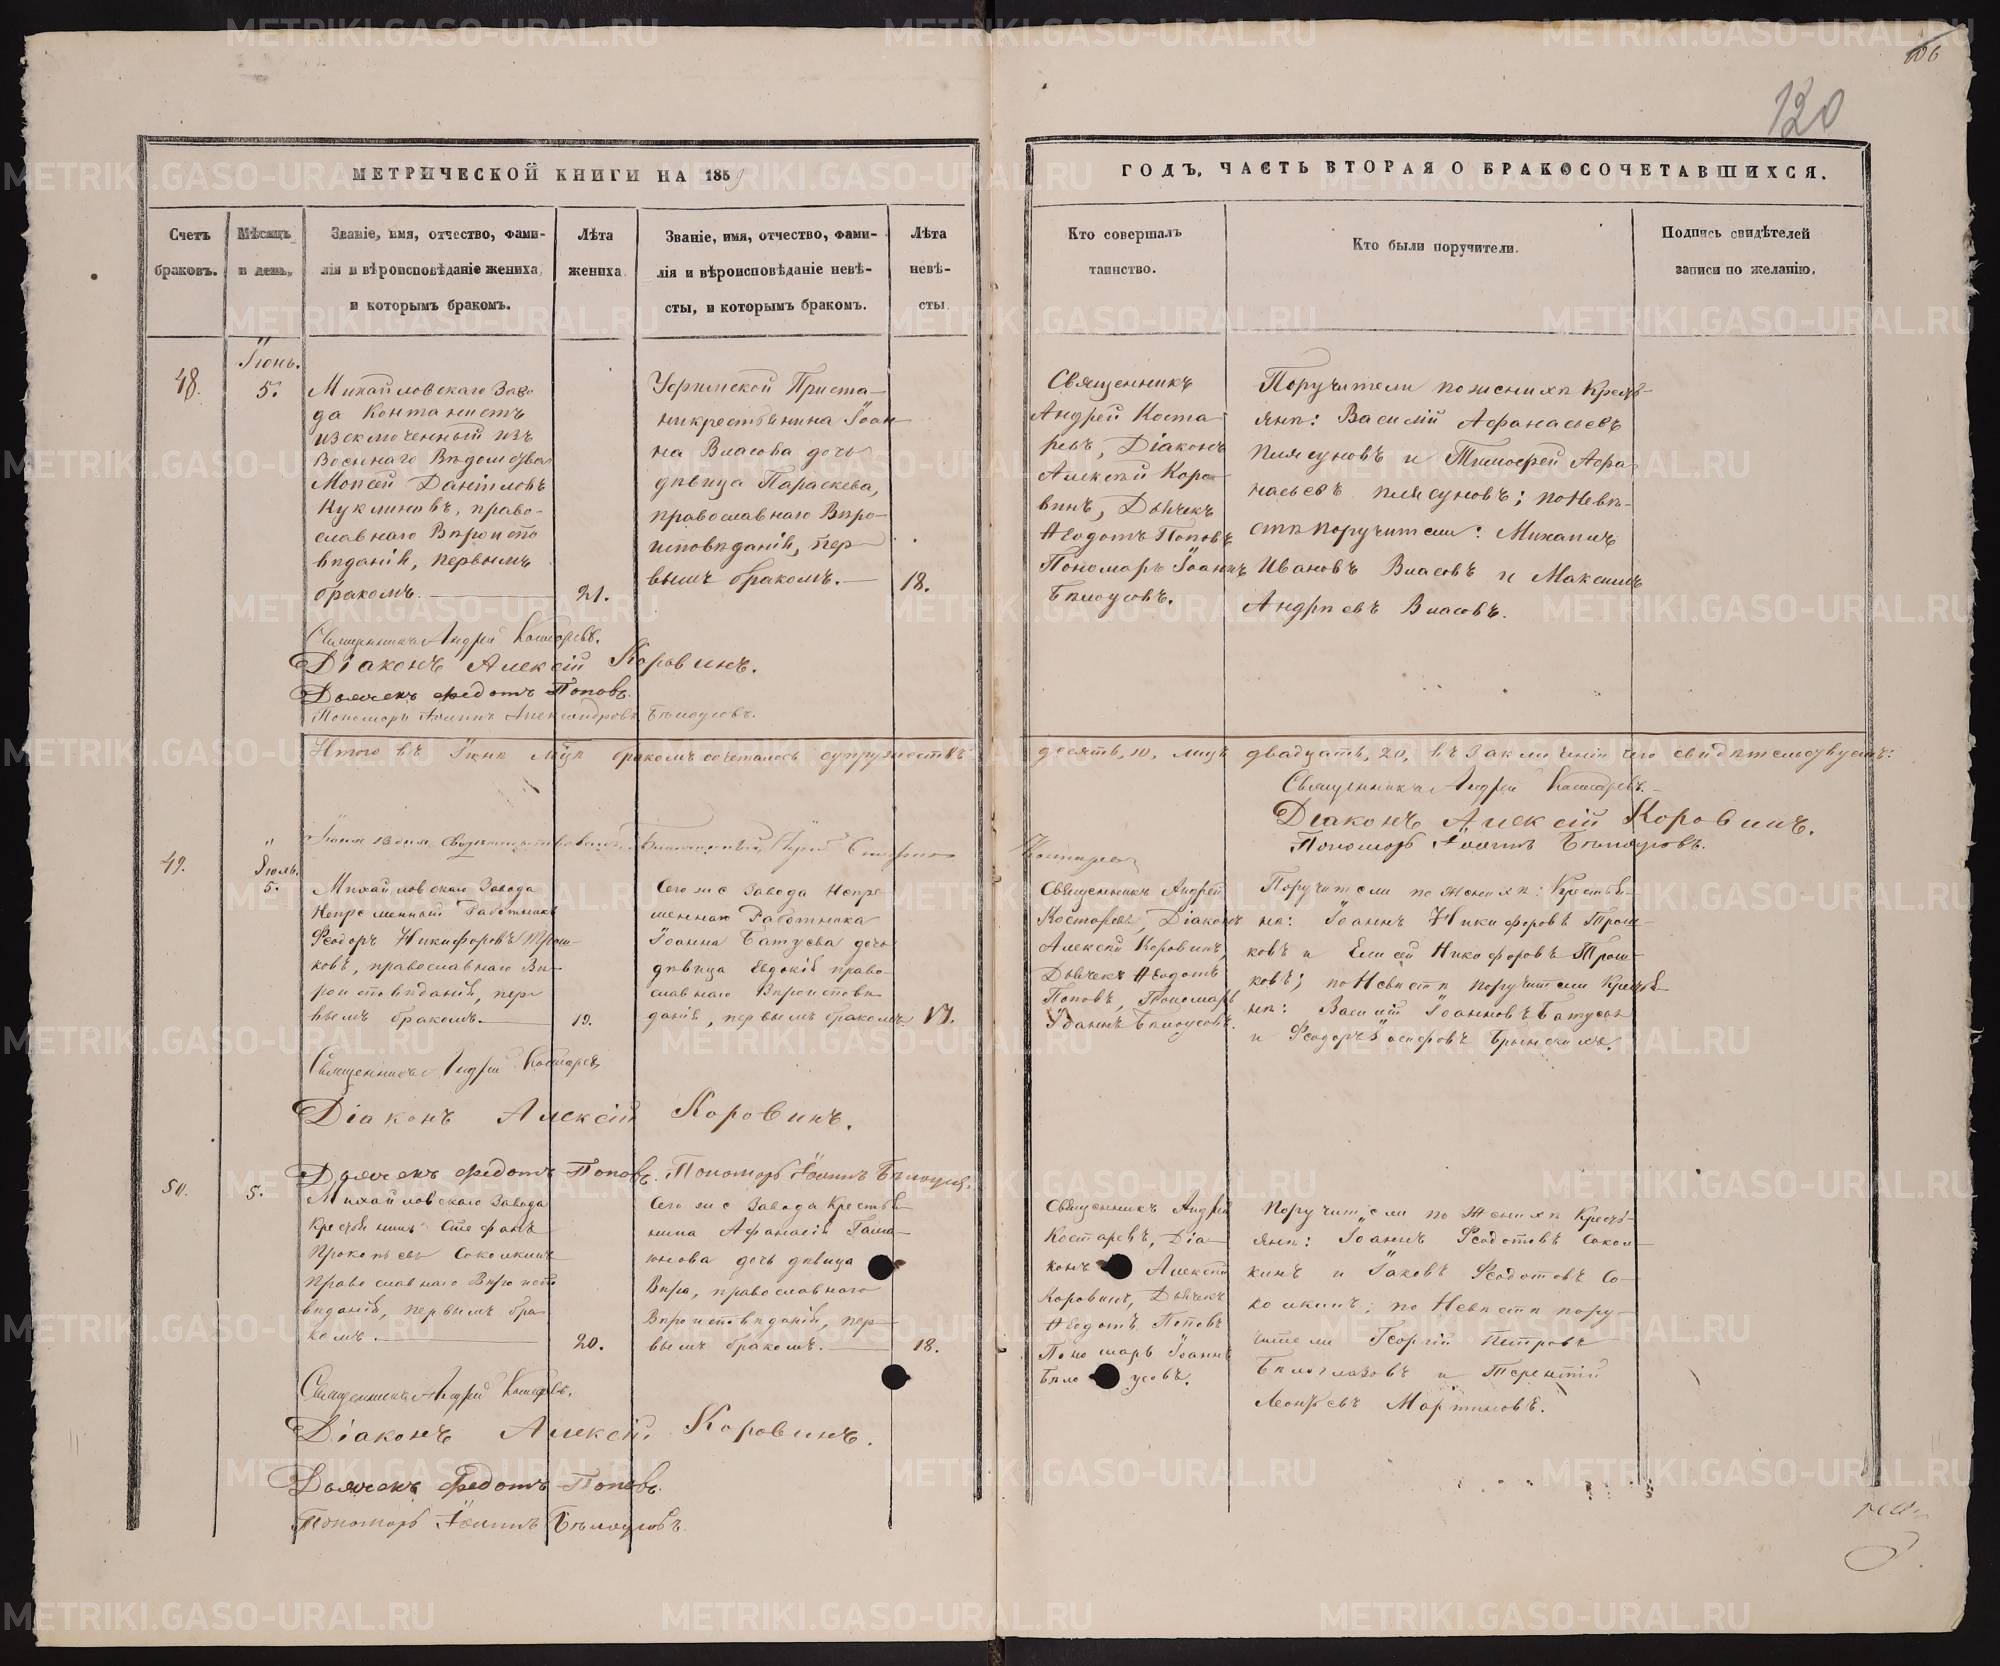 106
120
МЕТРИЧЕСКОЙ КНИГИ НА 1859
ГОДЪ, ЧАСТЬ ВТОРАЯ О БРАКОСОЧЕТАВШИХСЯ.
Счетъ
браковъ.
Мѣсяцъ
и день.
Званіе, имя, отчество, фами-
лія и вѣроисповѣданіе жениха
и которымъ бракомъ.
Лѣта
жениха
Званіе, имя, отчество, фами-
лія и вѣроисповѣданіе невѣ-
сты, и которымъ бракомъ.
Лѣта
невѣ-
сты
Кто совершалъ
таинство.
Кто были поручители.
Подпись свидѣтелей
записи по желанію.
48.
Іюнь.
5.
Михайловскаго Заво
да Контанистъ
изключенный изъ
Военнаго Вѣдомства
Моисей Даніиловъ
Куклиновъ, право-
славнаго Вѣроиспо
вѣданія, первымъ
бракомъ.
21.
Уфимской Приста-
ни крестьянина Іоан
на Власова дочь
дѣвица Параскева,
православнаго Вѣро-
исповѣданія, пер
вымъ бракомъ.
18.
Священникъ
Андрей Коста
ревъ, Діаконъ
Алексѣй Коро
винъ, Дьячекъ
Ѳеодотъ Поповъ
Пономарь Іоаннъ
Бѣлоусовъ.
Поручители по женихѣ Кресть-
янѣ: Василій Афанасьевъ
Плясуновъ и Тимофей Афа
насьевъ Плясуновъ; по Невѣ-
стѣ поручители: Михаилъ
Ивановъ Власовъ и Максимъ
Андрѣевъ Власовъ.
Священникъ Андрей Костаревъ.
Діаконъ Алексій Коровинъ.
Дьячекъ Федотъ Поповъ.
Пономарь Іоаннъ Александровъ Бѣлоусовъ.
Итого въ Іюнѣ мцѣ бракомъ сочеталось супружествъ
десять, 10, лицъ двадцать, 20, въ заключеніи чего свидѣтельствуемъ:
Священникъ Андрей Костаревъ.
Діаконъ Алексій Коровинъ.
Пономарь Іоаннъ Бѣлоусовъ.
49.
Іюль.
5.
Михайловскаго Завода
Непременный Работникъ
Ѳеодоръ Никифоровъ Трош-
ковъ, православнаго Вѣ-
роисповѣданія, пер
вымъ бракомъ.
19.
Сего же Завода Непре
меннаго Работника
Іоанна Батуева дочь
дѣвица Евдокія право-
славнаго Вѣроисповѣ
данія, первымъ бракомъ.
17.
Священникъ Андрей
Костаревъ, Діаконъ
Алексѣй Коровинъ,
Дьячекъ Ѳеодотъ
Поповъ, Пономарь
Іоаннъ Бѣлоусовъ.
Поручители по женихѣ: Крестья-
нѣ: Іоаннъ Никифоровъ Трош-
ковъ и Елисей Никифоровъ Трош-
ковъ; по Невѣстѣ поручители Крестья-
нѣ: Василій Іоанновъ Батуевъ
и Ѳеодоръ Іосифовъ
Священникъ Андрей Костаревъ
Діаконъ Алексій Коровинъ.
Дьячекъ Федотъ Поповъ. Пономарь Іоаннъ Бѣлоусовъ.
50.
5.
Михайловскаго Завода
Крестьянинъ Стефанъ
Прокопьевъ Соколкинъ
Православнаго Вѣроиспо
вѣданія, первымъ бра
комъ.
20.
Сего же Завода Крестья-
нина Афанасія Гама-
юнова дочь дѣвица
Вѣра, православнаго
Вѣроисповѣданія, пер-
вымъ бракомъ.
18.
Священникъ Андрей
Костаревъ, Діа-
конъ Алексѣй
Коровинъ, Дьячекъ
Ѳеодотъ Поповъ
Пономарь Іоаннъ
Бѣлоусовъ.
Поручители по Женихѣ Кресть-
янѣ: Іоаннъ Ѳеодотовъ Сокол-
кинъ и Іаковъ Ѳеодотовъ Со-
колкинъ; по Невѣстѣ пору-
чители Георгій Петровъ
Бѣлоглазовъ и Терентій
Леонтьевъ Мартиновъ.
Священникъ Андрей Костаревъ.
Діаконъ Алексій Коровинъ.
Дьячекъ Федотъ Поповъ.
Пономарь Іоаннъ Бѣлоусовъ.
METRIKI.GASO-URAL.RU